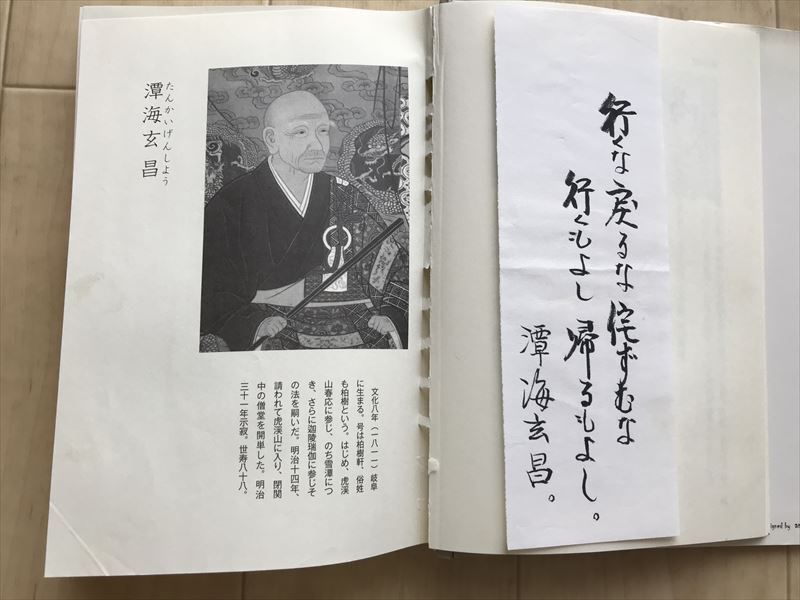 行くな 戻るな 侘ずむな
行くもよし 帰るもよし。
潭海玄昌。
たんかいげんしよう
潭海玄昌
文化八年（一八一一）岐阜
に生まる。号は柏樹軒、俗姓
も柏樹という。はじめ、虎渓
山春応に参じ、のち雪潭につ
き、さらに迦陵瑞伽に参じそ
の法を嗣いだ。明治十四年、
請われて虎渓山に入り、閉関
中の僧堂を開単した。明治
三十一年示寂。世寿八十八。
igned by